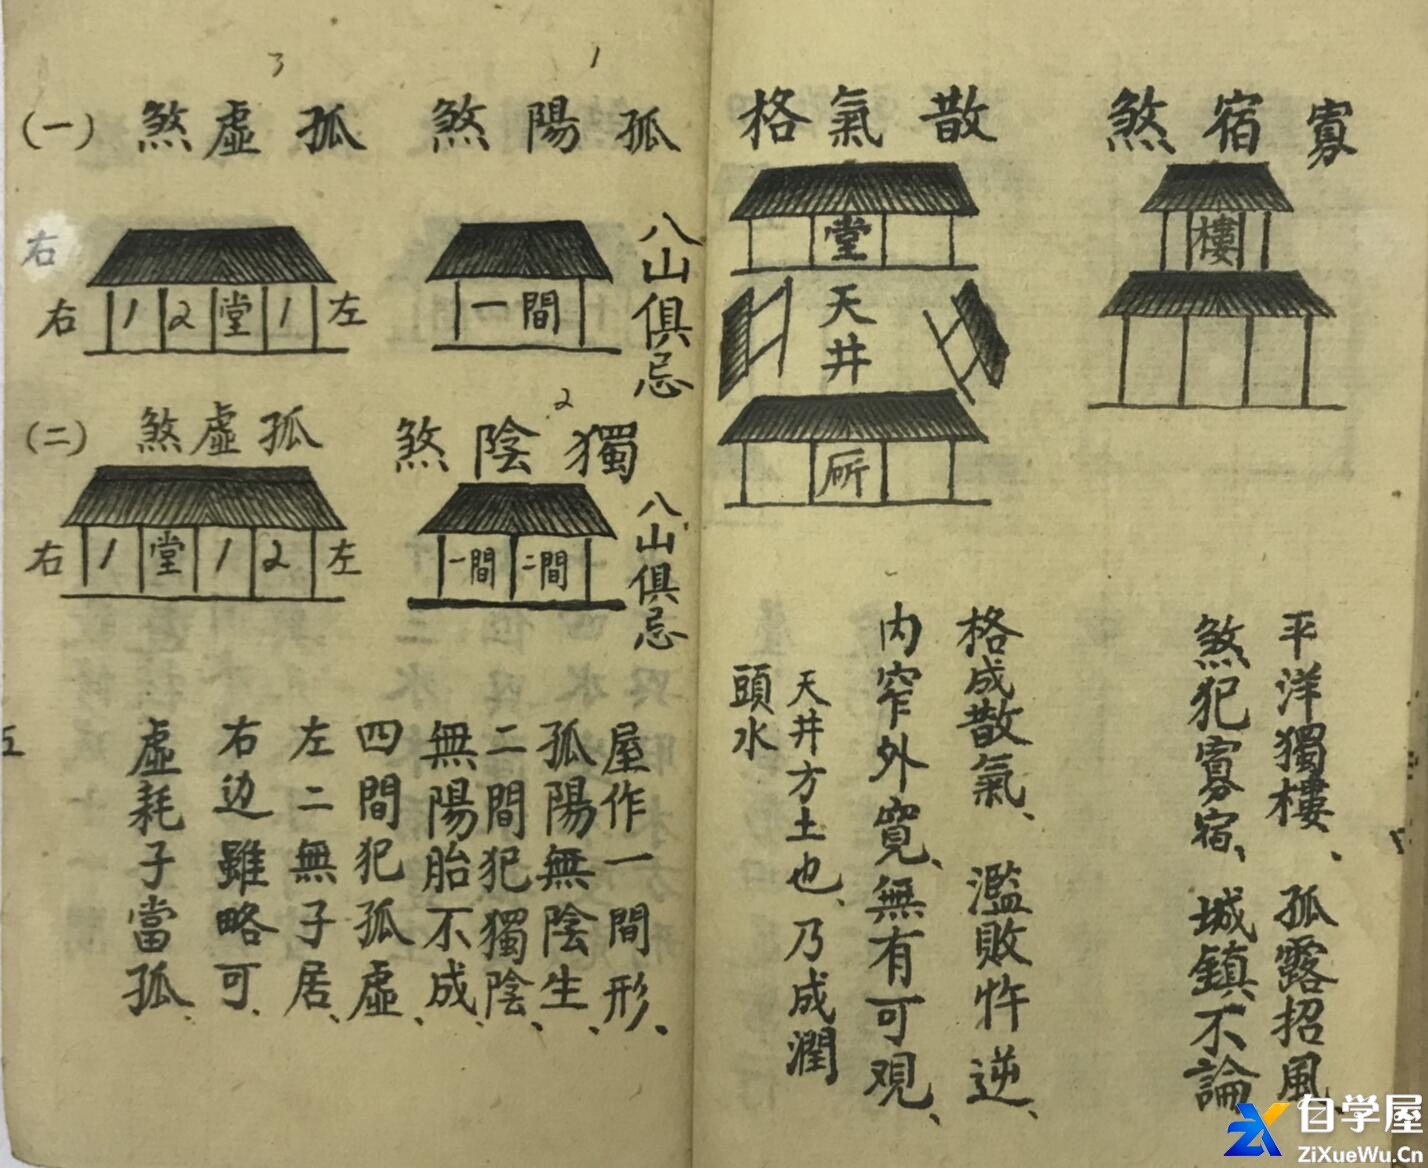 寡宿煞
樓
平洋獨樓、孤露招風、
煞犯寡宿、城鎮不論
散氣格
堂
天井
𠩄
格成散氣、濫敗忤逆、
内窄外寬、無有可观、
天井方土也、乃成潤
頭水
1
孤陽煞
一間
八山俱忌
2
獨陰煞
一間 二間
八山俱忌
3
孤虛煞 (一)
右
右 1 2 堂 1 左
孤虛煞 (二)
右 1 堂 1 2 左
屋作一間形、
孤陽無陰生、
二間犯獨陰、
無陽胎不成、
四間犯孤虛、
左二無子居、
右边雖略可、
虛耗子當孤、
五
自学屋
ZiXueWu.Cn